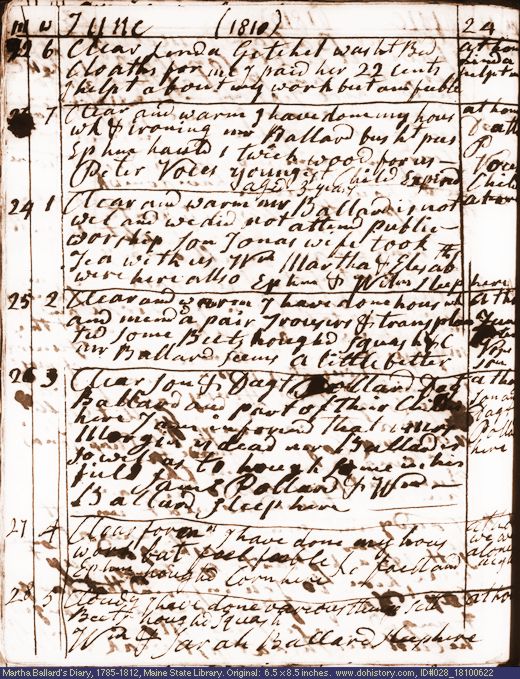 m w June (1810) 24
22 6 Clear Linda Getchel washt Bed at home
Cloaths for me I paid her 22 Cents Linda
I helpt about my work but am feeble helpt me
23 7 Clear and warm I have done my hous at home
wk & ironing mr Ballard busht pees Death
Ephm hauld 1 twich wood for us
Peter Voces youngest Child Expird Voces
aged 3 years Child
24 1 Clear and warm mr Ballard is not at home
well and we did not attend public
worship Son Jonas wife took
Tea with us Wm Martha & Elisab th
were here allso Ephm & Wilm sleep here
25 2 Clear and warm I have done hous wk at ho
and mend a pair Trousers & transplan
ted some Beets houghd squash &C
mr Ballard seems a little better
26 3 Clear Son & Dagt Pollard Dag at ho
Ballard part of their Child
here I am informd that
is dead mr Ballard is
so well as to hough some in his here
field James Pollard & Wm
Ballard sleep here
27 4 Clear forenn I have done my hous
work but feel feeble
Ephm houghd Corn here
28 5 Cloudy I have done various things sett at ho
Beets houghd squash
Wm & Sarah Ballard sleep here
Martha Ballard's Diary, 1785-1812, Maine State Library. Original: 6.5 x 8.5 inches. www.dohistory.com, ID#028_18100622